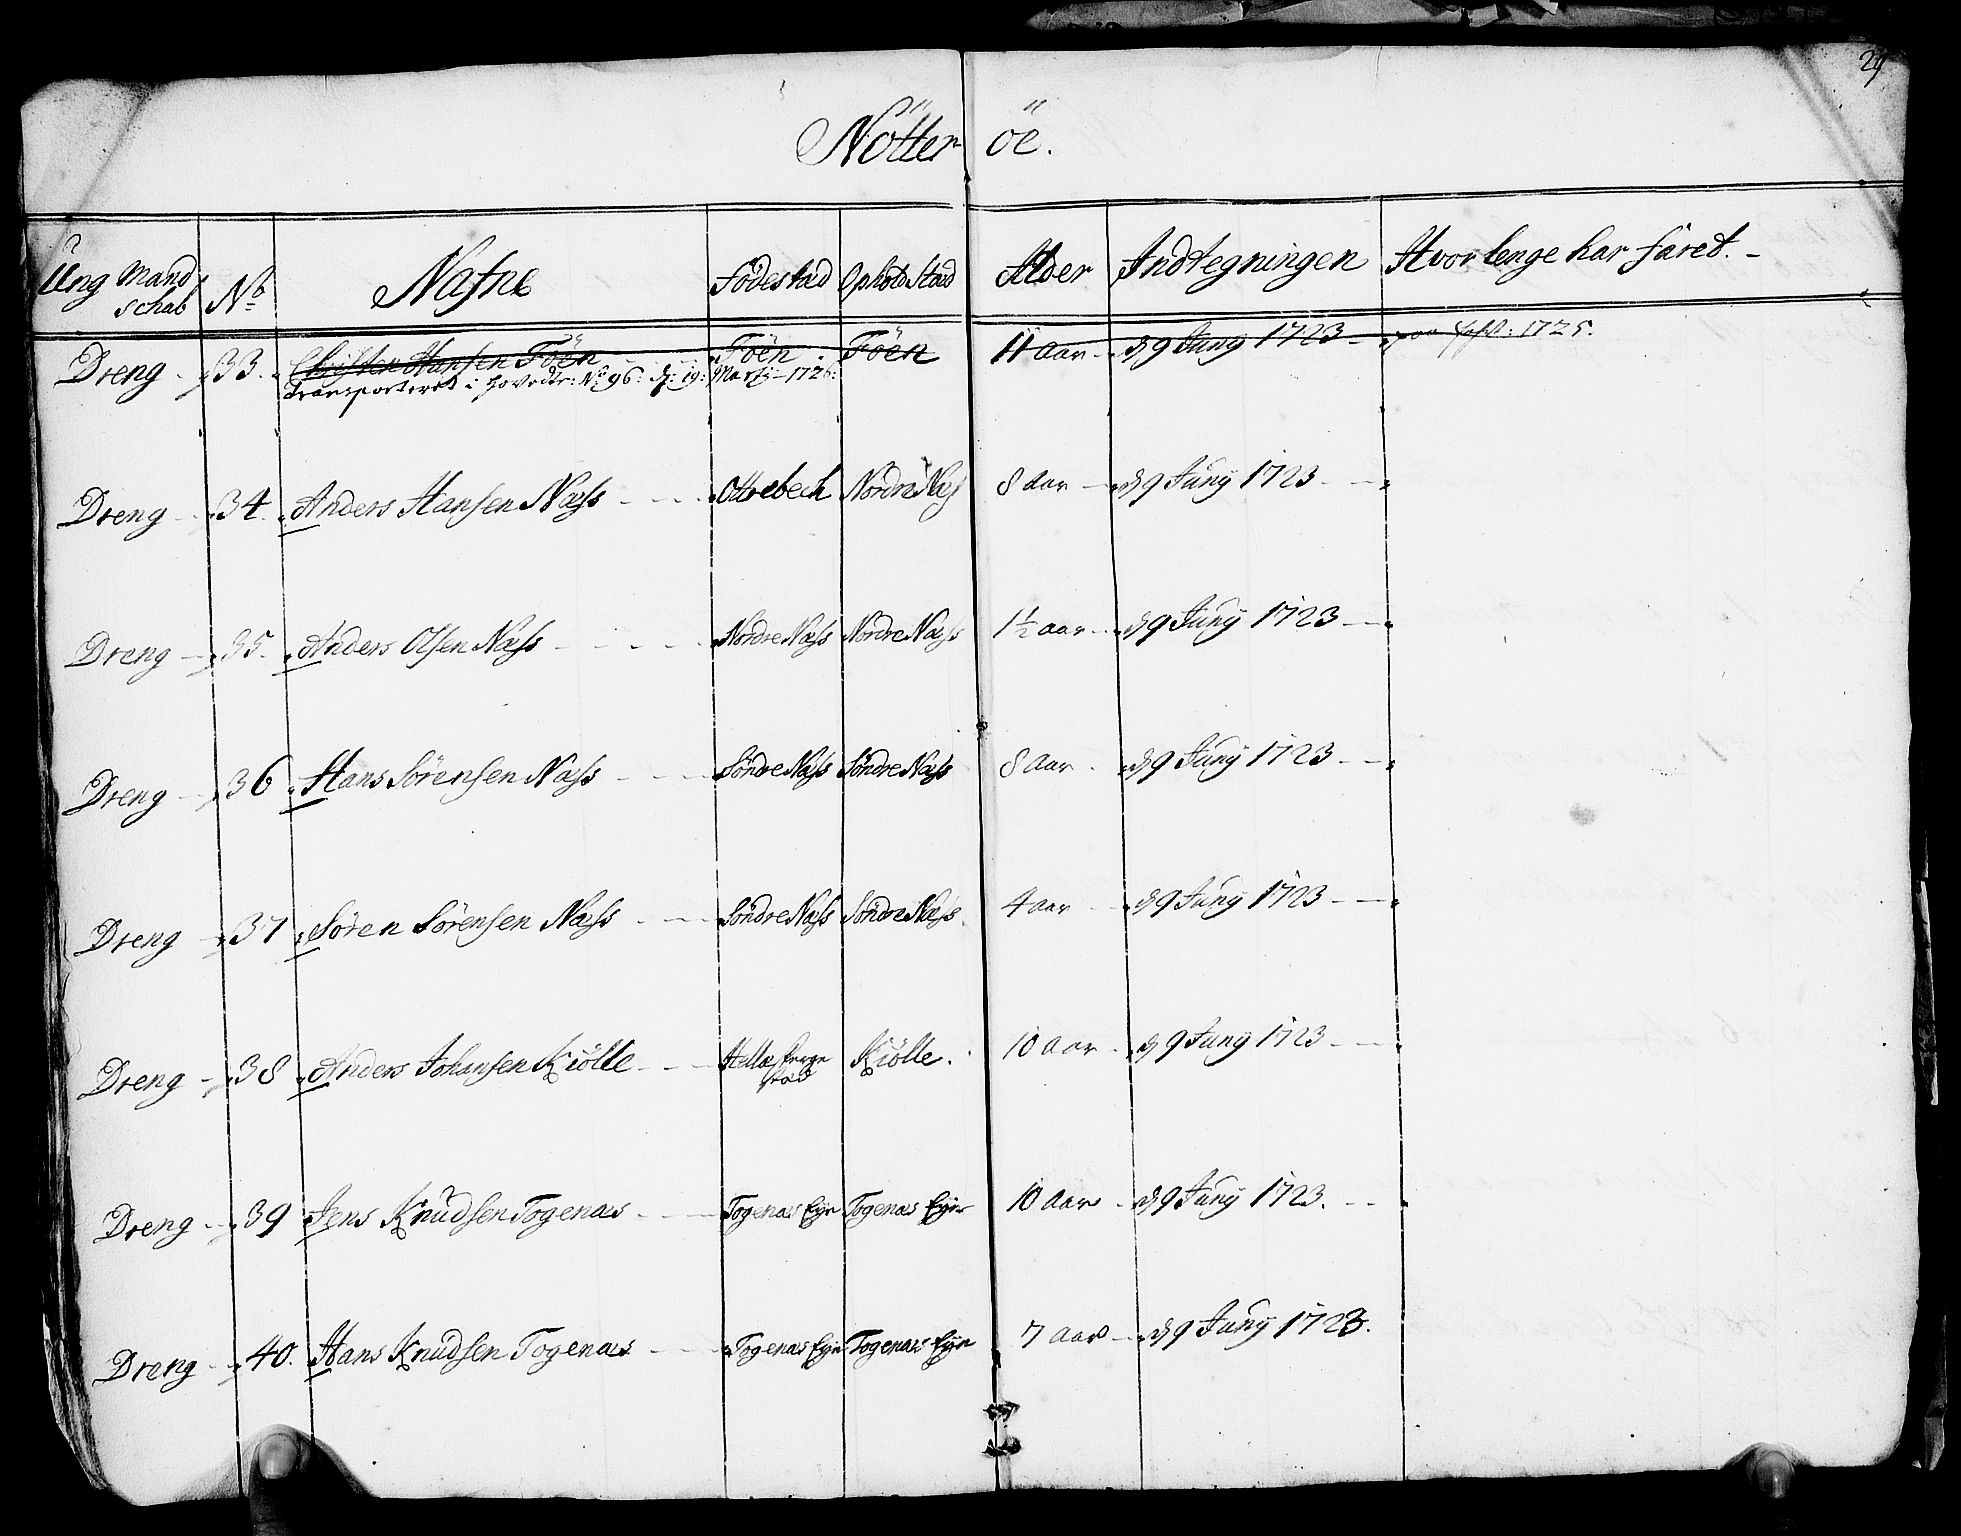 29
Nötter öe.
Ung Mand schab No Nafne Födestad Opholdstad Alder Indtegningen Hvor lenge har fáret.
Dreng 33. Christen Hansen Föen Föen Föen 11 aar d 9 Juny 1723 1725.
Transporteret i Hovedr: No 96: d: 19: Martj 1726:
Dreng 34. Anders Hansen Næss Ottrebech Nordre Næs 8 aar d 9 Juny 1723
Dreng 35. Anders Olsen Næss Nordre Næss Nordre Næss 1½ aar d 9 Juny 1723
Dreng 36 Hans Sörensen Næss Söndre Næss Söndre Næss 8 aar d 9 Juny 1723
Dreng 37 Sören Sörensen Næss Söndre Næss Söndre Næss 4 aar d 9 Juny 1723
Dreng 38 Anders Johansen Kiölle Kiölle. 10 aar d 9 Juny 1723
Dreng 39 Jens Knudsen Togenæs Togenæs Eye Togenæs Eye 10 aar d 9 Juny 1723.
Dreng 40. Hans Knudsen Togenæs Togenæs Eye Togenæs Eye 7 aar d 9 Juny 1723.